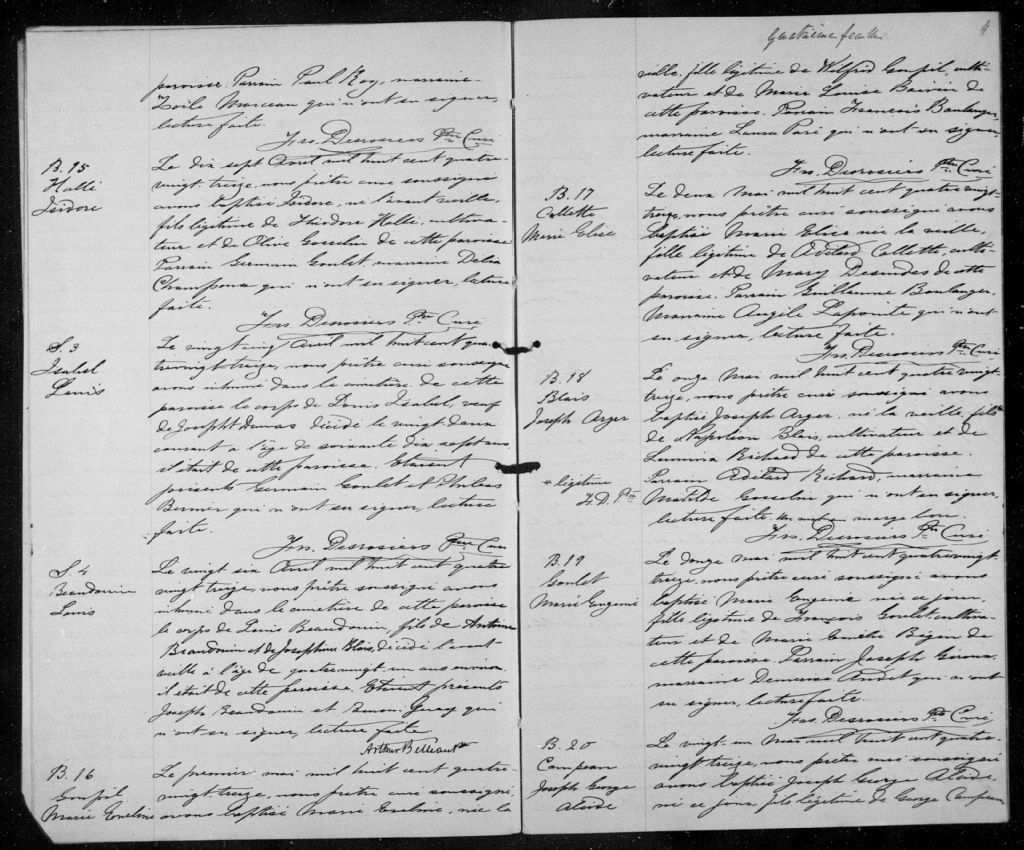 paroisse. Parrain Paul Roy, marraine
Zoile Marceau qui n'ont su signer,
lecture faite.
Frs. Desrosiers Ptre Curé
B. 15
Hallé
Isidore
Le dix sept Avril mil huit cent quatre-
vingt-treize, nous prêtre curé soussigné
avons baptisé Isidore, né l'avant veille,
fils légitime de Théodore Hallé, cultiva-
teur et de Olive Gosselin de cette paroisse
Parrain Germain Goulet, marraine Délia
qui n'ont su signer, lecture
faite.
Frs. Desrosiers Ptre Curé
S. 3
Isabel
Louis
Le vingt cinq Avril mil huit cent qua-
trevingt treize, nous prêtre curé soussigné
avons inhumé dans le cimetière de cette
paroisse le corps de Louis Isabel, veuf
de Josepht Dumas décédé le vingt deux
courant à l'âge de soixante dix sept ans
il était de cette paroisse. Etaient
présents Germain Goulet et
Bernier qui n'ont su signer, lecture
faite.
Frs. Desrosiers Ptre Curé
S. 4
Beaudouin
Louis
Le vingt six Avril mil huit cent quatre
vingt treize, nous prêtre soussigné avons
inhumé dans le cimetière de cette paroisse
le corps de Louis Beaudouin, fils de Antoine
Beaudouin et de Josephine Blais, décédé l'avant
veille à l'âge de quatrevingt un ans environ
il était de cette paroisse. Etaient présents
Joseph Beaudouin et Simon Guay qui
n'ont su signer, lecture faite
Arthur Belleau Ptre
B. 16
Goupil
Marie Eveline
Le premier mai mil huit cent quatre-
vingt-treize, nous prêtre curé soussigné,
avons baptisé Marie Eveline, née la
Quatrième feuillet
4
veille, fille légitime de Wilfrid Goupil, culti-
vateur et de Marie Louise Bauvin de
cette paroisse. Parrain François Boulanger,
marraine Laura Paré qui n'ont su signer,
lecture faite.
Frs. Desrosiers Ptre Curé
B. 17
Collette
Marie Elise
Le deux Mai mil huit cent quatre vingt-
treize, nous prêtre curé soussigné avons
baptisé Marie Elise née la veille,
fille légitime de Adélard Collette, culti-
vateur et de Mary de cette
paroisse. Parrain Guillaume Boulanger,
Marraine Angèle Lapointe qui n'ont
su signer, lecture faite.
Frs. Desrosiers Ptre Curé
B. 18
Blais
Joseph Arger
Le onze Mai mil huit cent quatre vingt-
treize, nous prêtre curé soussigné avons
baptisé Joseph Arger, né la veille, fils *
de Napoléon Blais, cultivateur et de
Lumina Richard de cette paroisse.
Parrain Adélard Richard, marraine
* légitime
F.D. Ptre
Matilde Gosselin qui n'ont su signer,
lecture faite. Un mot en marge bon.
Frs. Desrosiers Ptre Curé
B. 19
Goulet
Marie Eugénie
Le douze mai mil huit cent quatrevingt-
treize, nous prêtre curé soussigné avons
baptisé Marie Eugénie née ce jour,
fille légitime de François Goulet, cultiva-
teur et de Marie Emélie Bégin de
cette paroisse. Parrain Joseph Giroux,
marraine Demerise Audet qui n'ont
su signer, lecture faite.
Frs. Desrosiers Ptre Curé
B. 20
Campeau
Joseph George
Alcide
Le vingt-un Mai mil huit cent quatre-
vingt treize, nous prêtre curé soussigné
avons baptisé Joseph George Alcide,
né ce jour fils légitime de George Campeau,